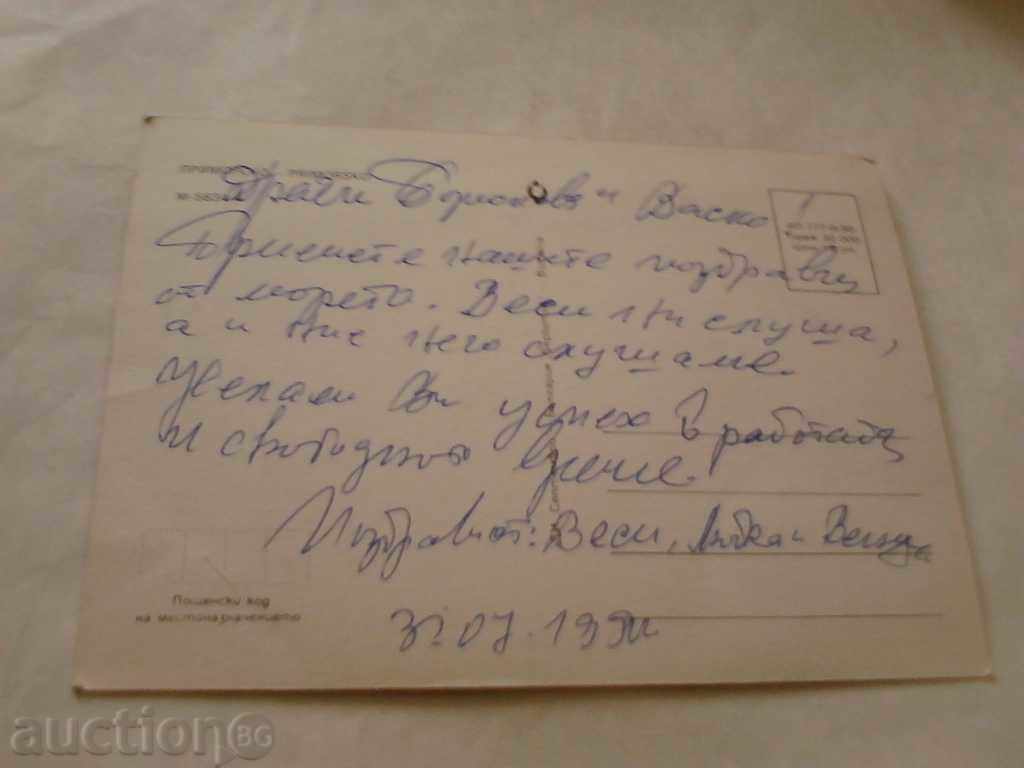 Драги Борисов и Васко
Приемете нашите поздрави
от морето. Веси ни слуша,
а и ние него слушаме.
Желаем Ви успех в работата
и свободното време.
Поздрави от: Веси, Любка и
07.1990
Пощенски код
на местоназначението
auction BG